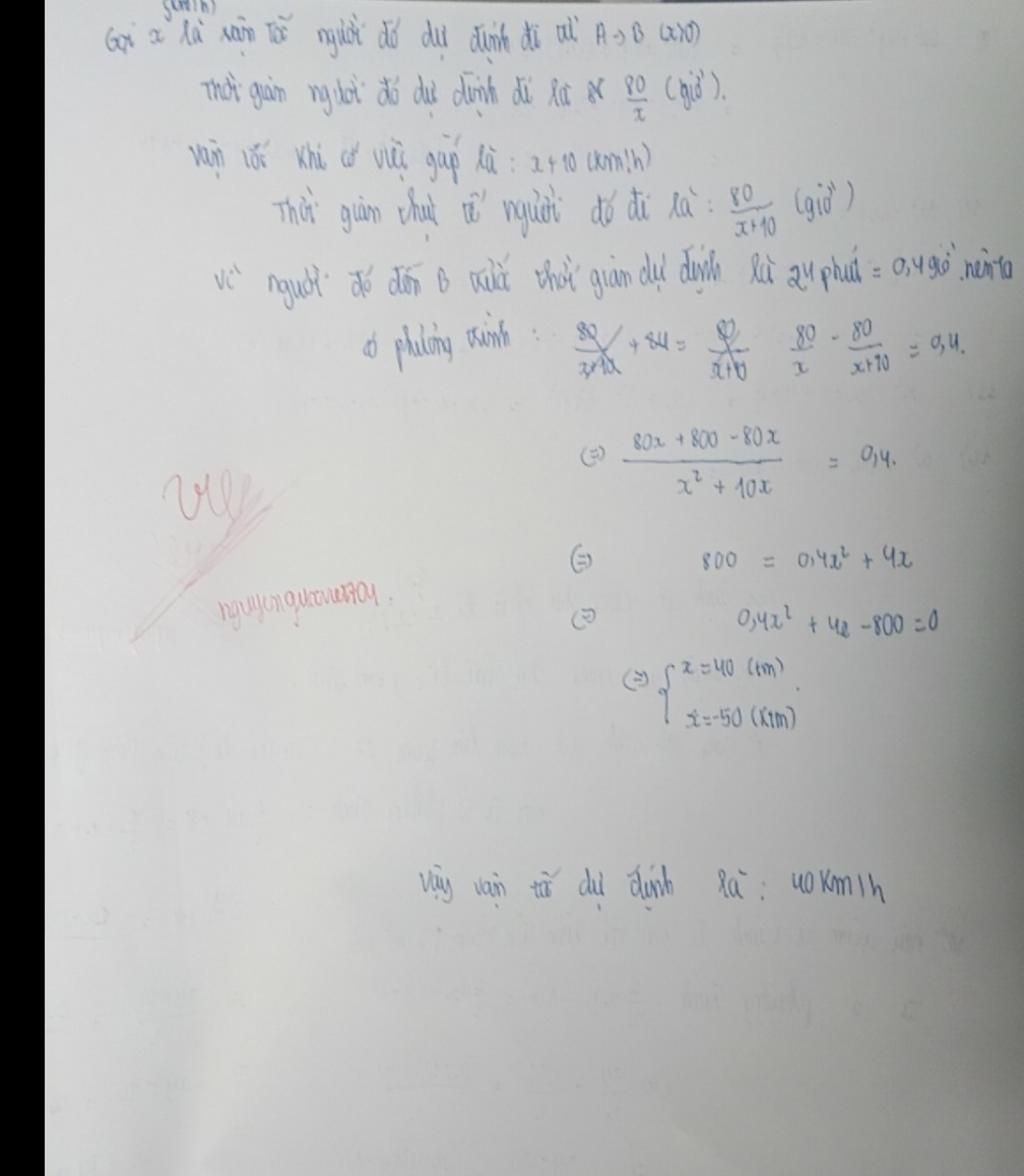 (km/h)
Gọi x là vận tốc người đó dự định đi từ A → B (x>0)
Thời gian người đó dự định đi là 80/x (giờ).
Vận tốc khi có việc gấp là : x+10 (km/h)
Thời gian thực tế người đó đi là : 80/(x+10) (giờ)
Vì người đó đến B trước thời gian dự định là 24 phút = 0,4 giờ nên ta
có phương trình : 80/x - 80/(x+10) = 0,4.
(=) (80x + 800 - 80x)/(x² + 10x) = 0,4.
(=) 800 = 0,4x² + 4x
(=) 0,4x² + 4x - 800 = 0
(=) { x = 40 (tm)
x = -50 (ktm)
Vậy vận tốc dự định là : 40 Km/h